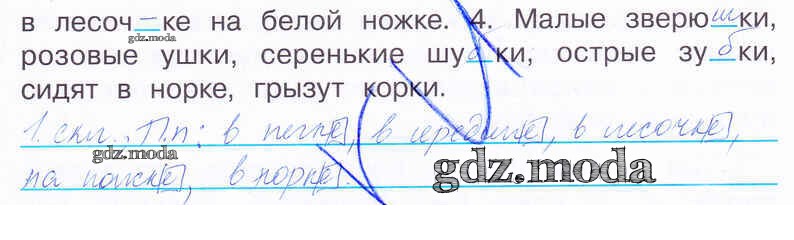 в лесоч–ке на белой ножке. 4. Малые зверюшки,
gdz.moda
розовые ушки, серенькие шубки, острые зубки,
сидят в норке, грызут корки.
1 скл., П.п: в петле, в середине, в лесочке,
gdz.moda
на ножке, в норке.
gdz.moda